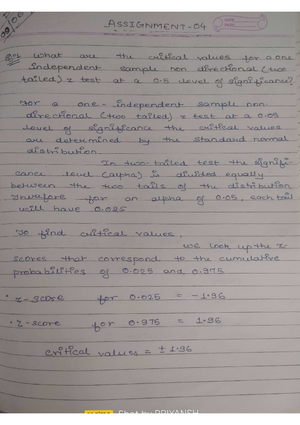 ASSIGNMENT-04
What are the critical values for a one
independent sample non directional (two
tailed) z test at a 0.5 level of significance?
For a one- independent sample non
directional (two tailed) z test at a 0.05
level of significance the critical values
are determined by the standard normal
distribution.
In two-tailed test the signifi-
cance level (alpha) is divided equally
between the two tails of the distribution
Therefore for an alpha of 0.05, each tail
will have 0.025
To find critical values,
we look up the z-
scores that correspond to the cumulative
probabilities of 0.025 and 0.975
• z-score for 0.025 = -1.96
• z-score for 0.975 = 1.96
critical values = ± 1.96
Shot by PRIYANSH